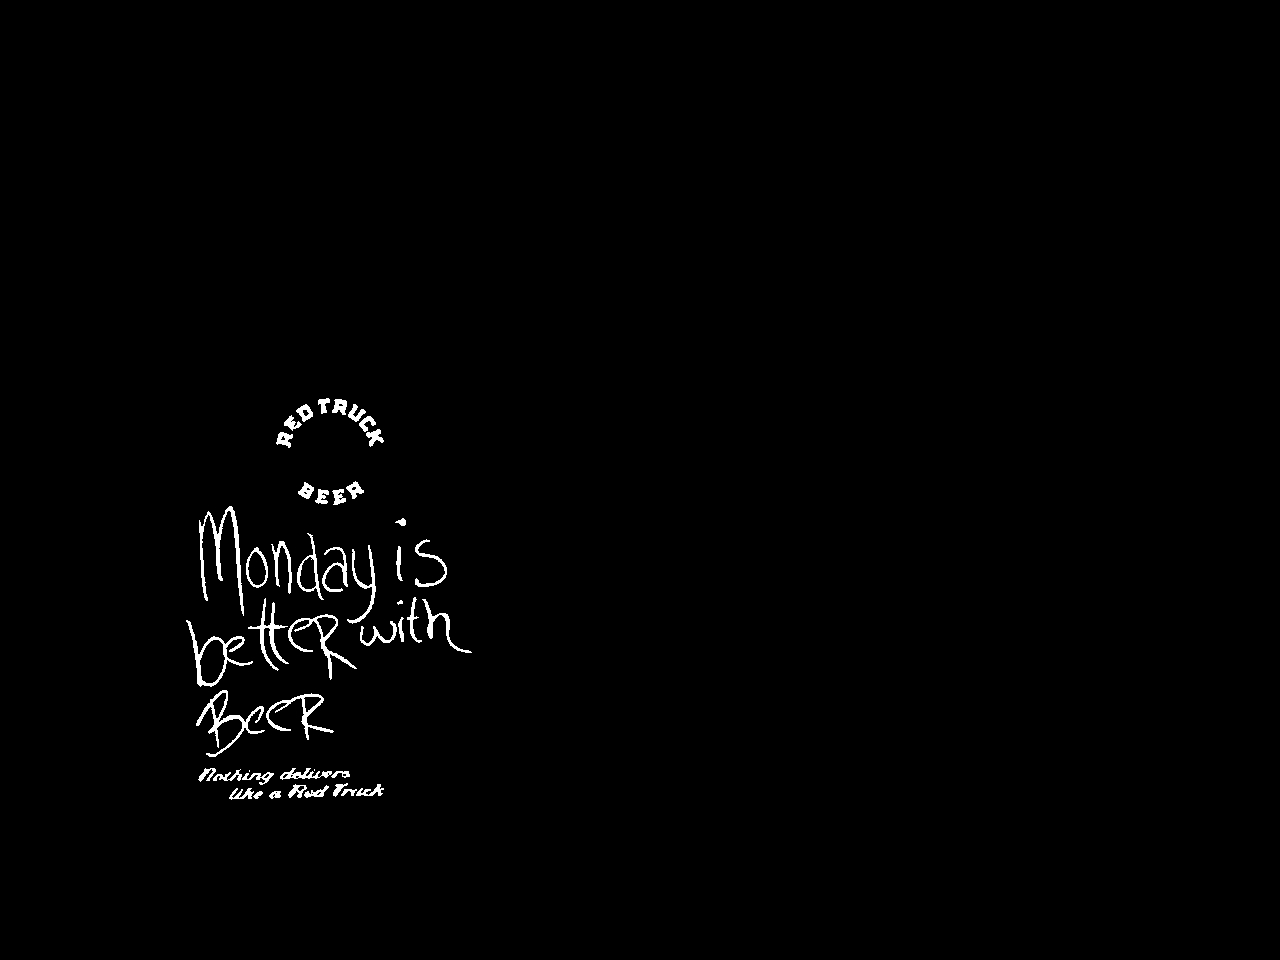 RED TRUCK
BEER
Monday is
better with
Beer
Nothing delivers
like a Red Truck